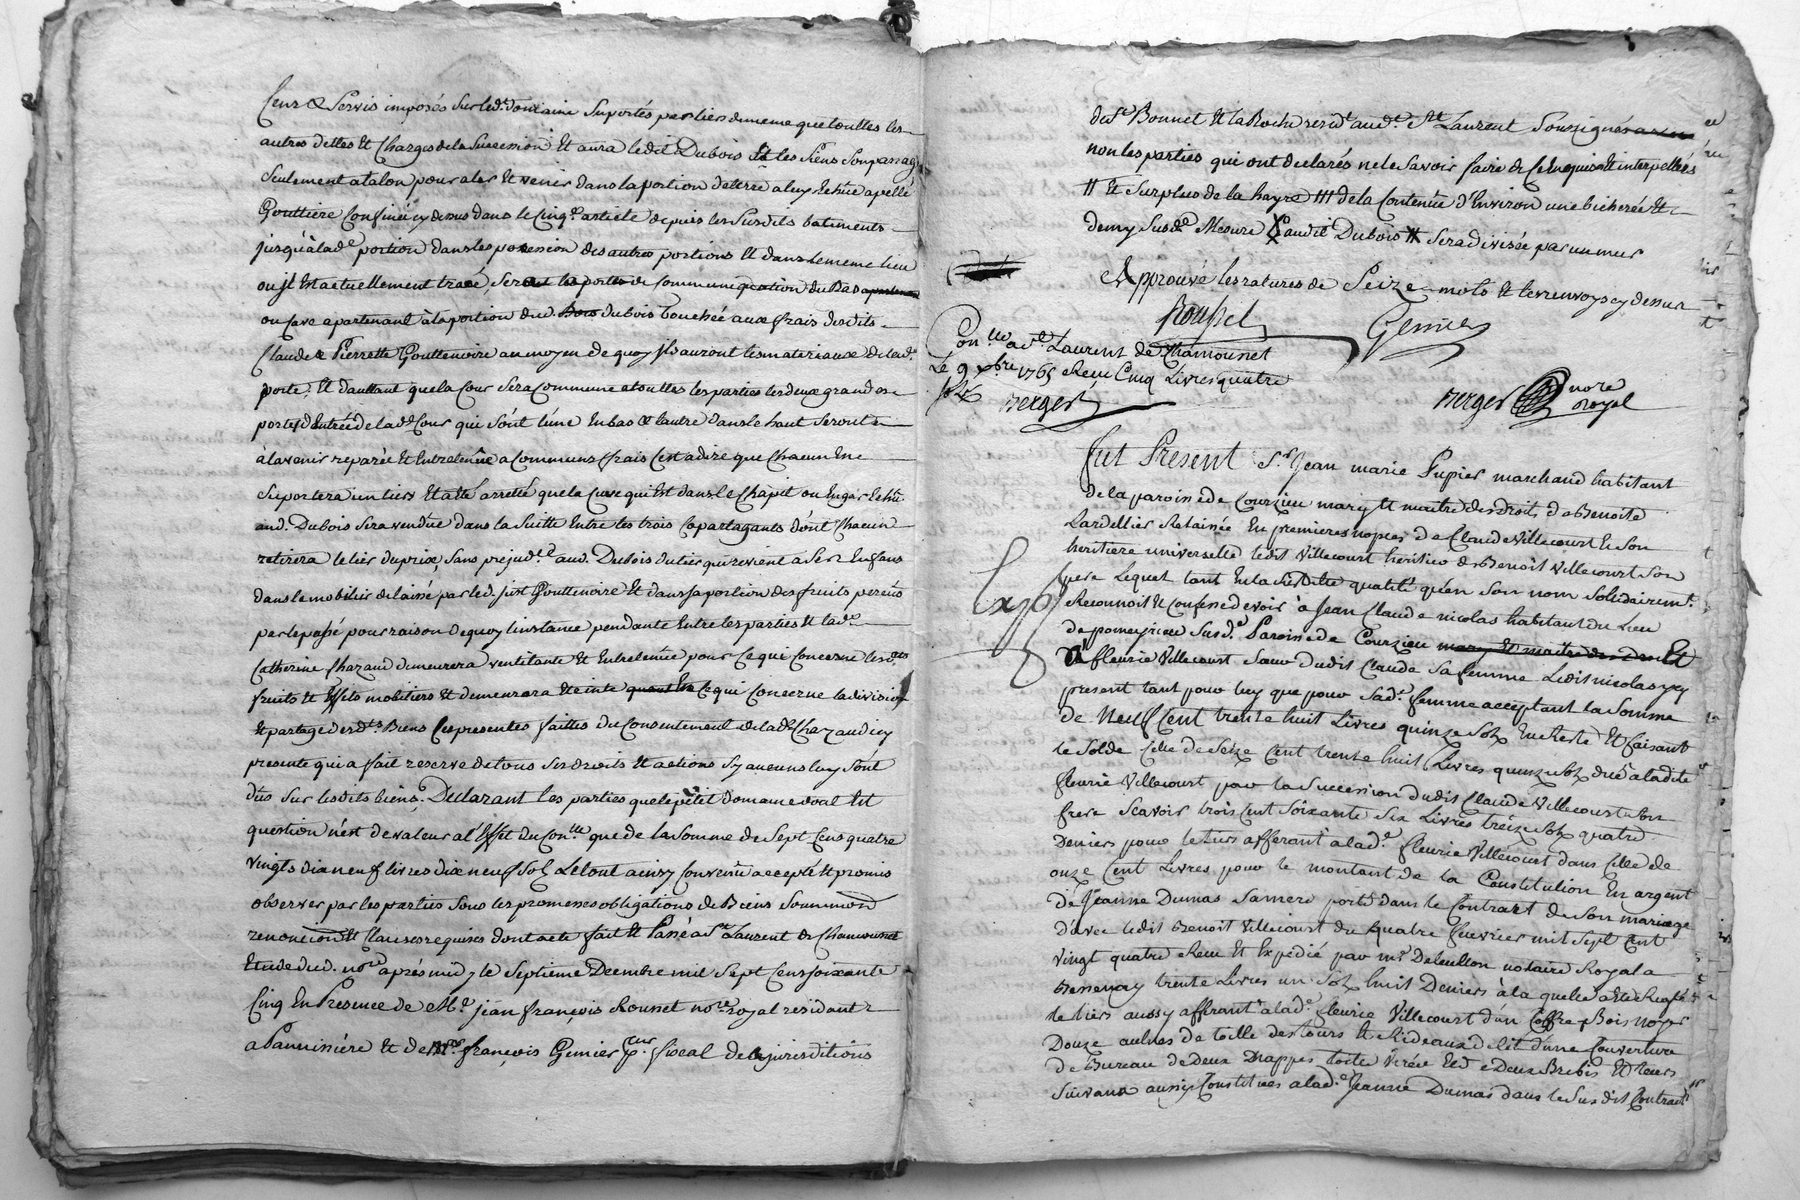 Cens & Servis imposés sur led. domaine Suportés par tiers de meme que touttes les
autres dettes et Charges de la Succession Et aura ledit Dubois Et les Siens Son passage
Seulement a talon pour aler Et venir dans la portion de terre a luy Echüe apellé
Gouttiere Confinée cy dessus dans le Cinq.e article depuis les Susdits batiments
jusqu'à lad.e portion dans les possession des autres portions Et dans le meme lieu
ou jl Est actuellement tracé, Sera la porte de Communiquation du Bas
ou Cave apartenant à la portion dud. Dubois Bouchée aux frais desdits
Claude & Pierrette Gouttenoire au moyen de quoy jls auront les materiaux de lad.e
porte, Et d'auttant que la Cour Sera Commune a touttes les parties les deux grandes
portes d'entrée de lad.e Cour qui sont l'une En bas & l'autre dans le haut Seront
à l'avenir reparée Et Entretenüe a Communs frais C'est a dire que Chacun En
Suportera un tiers Et a Eté arretté que la Cuve qui Est dans le Chapit ou Engar Echu
aud. Dubois Sera vendüe dans la Suitte Entre les trois Copartageants dont Chacun
retirera le tier du prix, Sans prejud.ce aud. Dubois du tier qui revient a Ses Enfans
dans le mobilier delaissé par led. just Gouttenoire Et dans sa portion des fruits perçüs
par le passé pour raison de quoy l'instance pendante Entre les parties Et lad.e
Catherine Chazaud demeurera ventilante Et Entretenüe pour Ce qui Concerne lesd.ts
fruits Et Effets mobiliers Et demeurera Eteinte quant En Ce qui Concerne la division
Et partage desd.ts Biens Ces presentes faittes du Consentement de lad.e Chazaud icy
presente qui a fait reserve de tous Ses droits Et actions Sy aucuns luy Sont
dûs Sur lesdits biens. Declarant les parties que le petit domaine dont Est
question n'est de valeur a l'Effet du Con.lle que de la Somme de Sept Cens quatre
vingts dix neuf livres dix neuf Sols Le tout ainsy Convenu accepté Et promis
observer par les parties Sous les promesses obligations de Biens Soummission
renonciõn Et Clauses requises dont acte fait Et Passé a S.t Laurent de Chamousset
Etude dud. no.re après midy le Septieme Decembre mil Sept Cens Soixante
Cinq En Presence de M.e jean françois Roussel no.re royal residant
a Pannissiére Et de M.e françois Genier p.cur fiscal de la jurisdictions
de S.t Bonnet Et la Roche resid.t aud.t S.t Laurent Soussignés
non les parties qui ont declarés ne le Savoir faire de Ce Enquis Et interpellées
# Et Surplus de la hayre ### de la Contenüe d'Environ une bicherée Et
demy Susd.e Mesure X audit Dubois # Sera divisée par un mur
Approuvé les ratures de Seize mots Et les renvoys cy dessus
Roussel
Genier
Con.lle a S.t Laurent de Chamousset
Le 9 Xbre 1765 Reçu Cinq Livres quatre
sols
Berger
Berger nore
Royal
Fut Present S.r Jean marie Pupier marchand habitant
de la paroisse de Courzieu mary Et maitre des droits de Benoite
Lardellier Relaissée En premieres nopces de Claude Villecourt Et Son
heritiere universelle ledit Villecourt heritier de Benoit Villecourt Son
pere Lequel tant En la Susditte qualité qu'en Son nom Solidairem.t
Exp.é
Reconnoit Et Confesse devoir à Jean Claude nicolas habitant du Lieu
de pomeyrieu Susd.e Paroisse de Courzieu mary Et maitre des Droits Et
A fleurie Villecourt Sœur dudit Claude Sa femme Ledit nicolas icy
present tant pour luy que pour Sad.e femme acceptant la Somme
de Neuf Cent trente huit Livres quinze Sols En Reste Et faisant
le Solde Celle de Seize Cent trente huit Livres quinze Sols düe à ladite
fleurie Villecourt pour la Succession dudit Claude Villecourt Son
frere Scavoir trois Cent Soixante Six Livres treize Sols quatre
Deniers pour le tiers afferant à lad.e fleurie Villecourt dans Celle de
onze Cent Livres pour le montant de la Constitution En argent
de Jeanne Dumas Sa mere porté dans le Contract de Son mariage
d'avec ledit Benoit Villecourt du quatre fevrier mil Sept Cent
vingt quatre Reçu Et Expedié par m.e Deleullion notaire Royal a
Bessenay trente Livres un Sols huit Deniers à la quelle a Eté Reglé
le tiers aussy afferant à lad.e fleurie Villecourt d'un Coffre Bois noyer
Douze aulnes de toille des tours Et Rideaux de lit d'une Couverture
de Bureau de Deux Nappes toile Et de Deux Brebis Et leurs
Suivans aussy Constitués a lad.e Jeanne Dumas dans le Susdit Contract